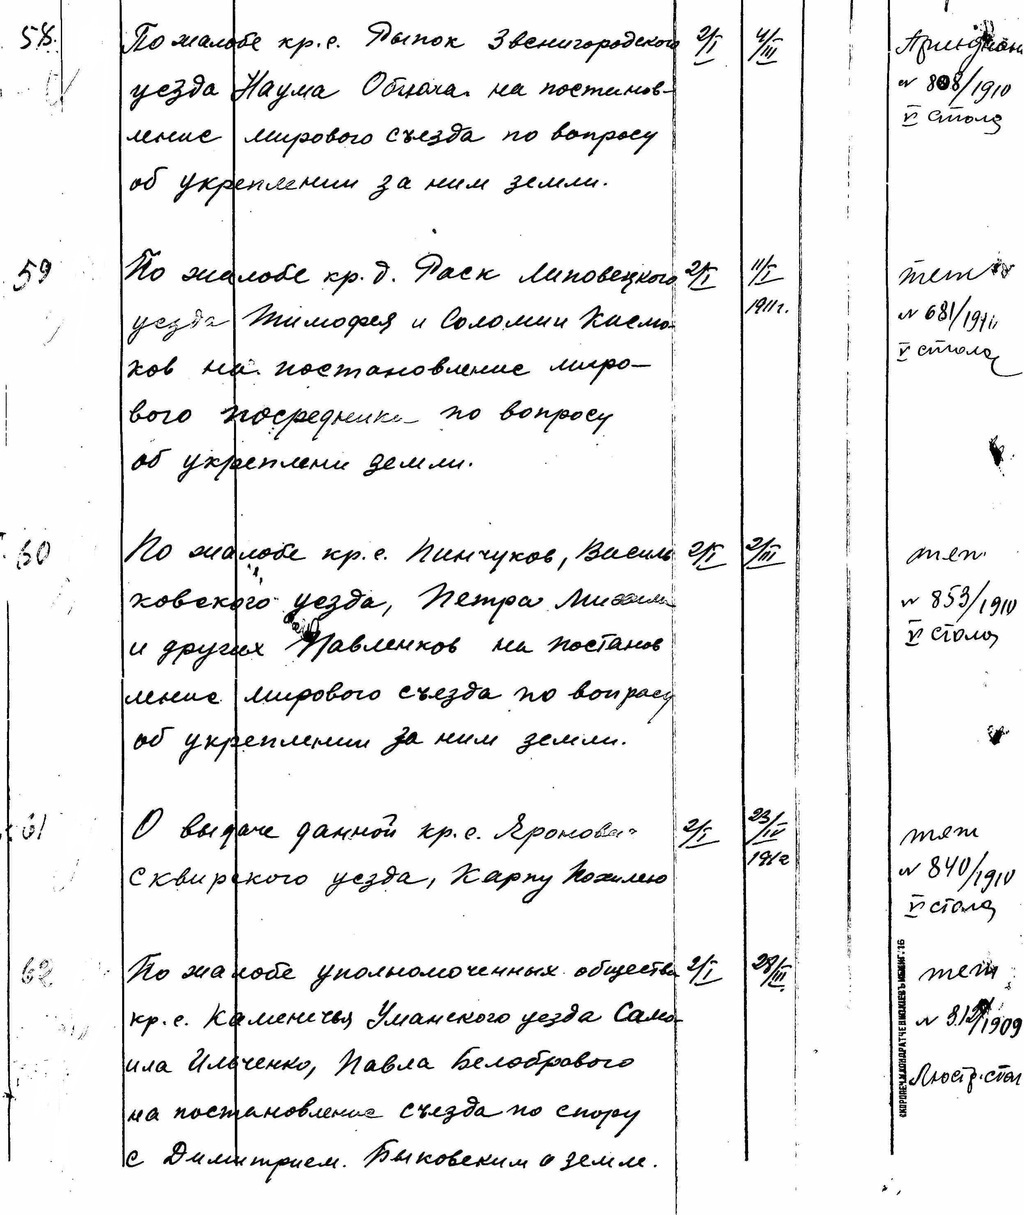 58. По жалобе кр. с. Рыпок Звенигородского 2/I 4/III
уезда Наума на постанов-
№ 808/1910
ление мирового съезда по вопросу
V стола
об укреплении за ним земли.
59 По жалобе кр. д. Раск Липовецкого 2/I 11/I
1911 г.
уезда Тимофея и Соломии Кисма-
№ 681/1910
ков на постановление миро-
V стола
вого посредника по вопросу
об укреплени земли.
60 По жалобе кр. с. Пинчуков, Василь 2/I 2/III
ковского уезда, Петра
№ 853/1910
и других Павленков на постанов
V стола
ление мирового съезда по вопросу
об укреплении за ним земли.
61 О выдаче данной кр. с. 2/I 23/IV
191 г
Сквирского уезда, Карпу Похилею
№ 840/1910
V стола
62 По жалобе уполномоченных общества 2/I 28/III
кр. с. Каменечья Уманского уезда Само-
1909
ила Ильченко, Павла Белобрового
Люстр. стол
на постановление съезда по спору
с Димитрием Быковским о земле.